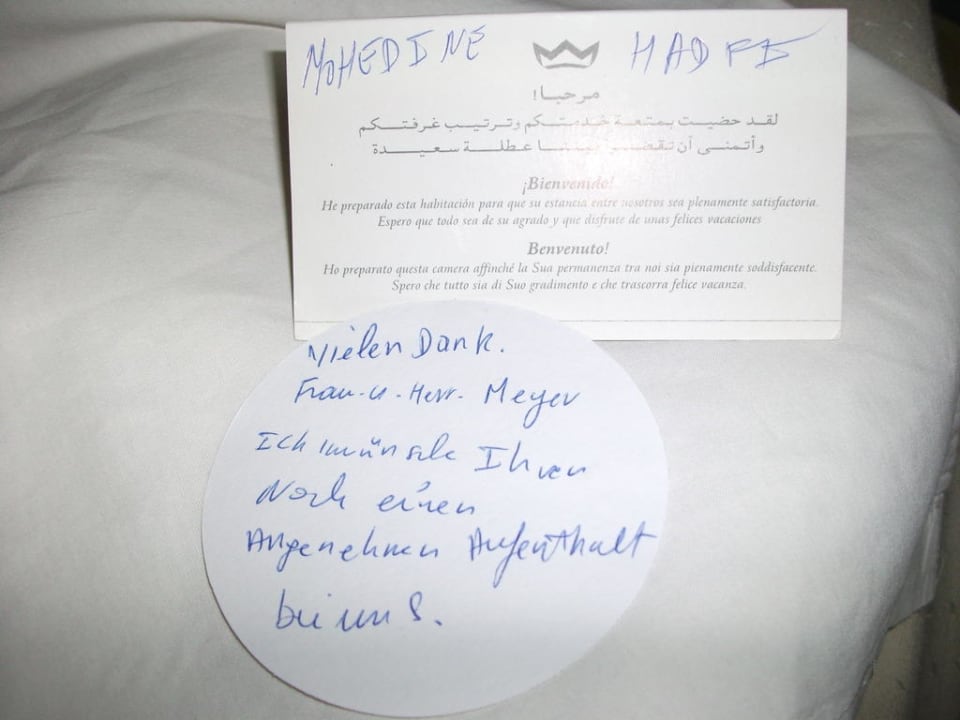 MOHEDINE HADFI
مرحبا!
لقد حضيت بمتعة خدمتكم وترتيب غرفتكم
وأتمنى أن تقضوا بيننا عطلة سعيدة
¡Bienvenido!
He preparado esta habitación para que su estancia entre nosotros sea plenamente satisfactoria.
Espero que todo sea de su agrado y que disfrute de unas felices vacaciones
Benvenuto!
Ho preparato questa camera affinché la Sua permanenza tra noi sia pienamente soddisfacente.
Spero che tutto sia di Suo gradimento e che trascorra felice vacanza.
Vielen Dank.
Frau-u-Herr. Meyer
Ich wünsche Ihnen
Noch einen
Angenehmen Aufenthalt
bei uns.